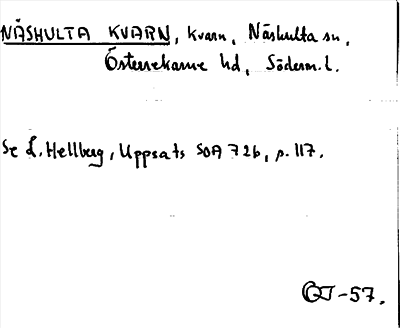 NÄSHULTA KVARN, kvarn, Näshulta sn,
Österrekarne hd, Söderm. l.
Se L. Hellberg, Uppsats SOA 726, p. 117.
GJ-57.